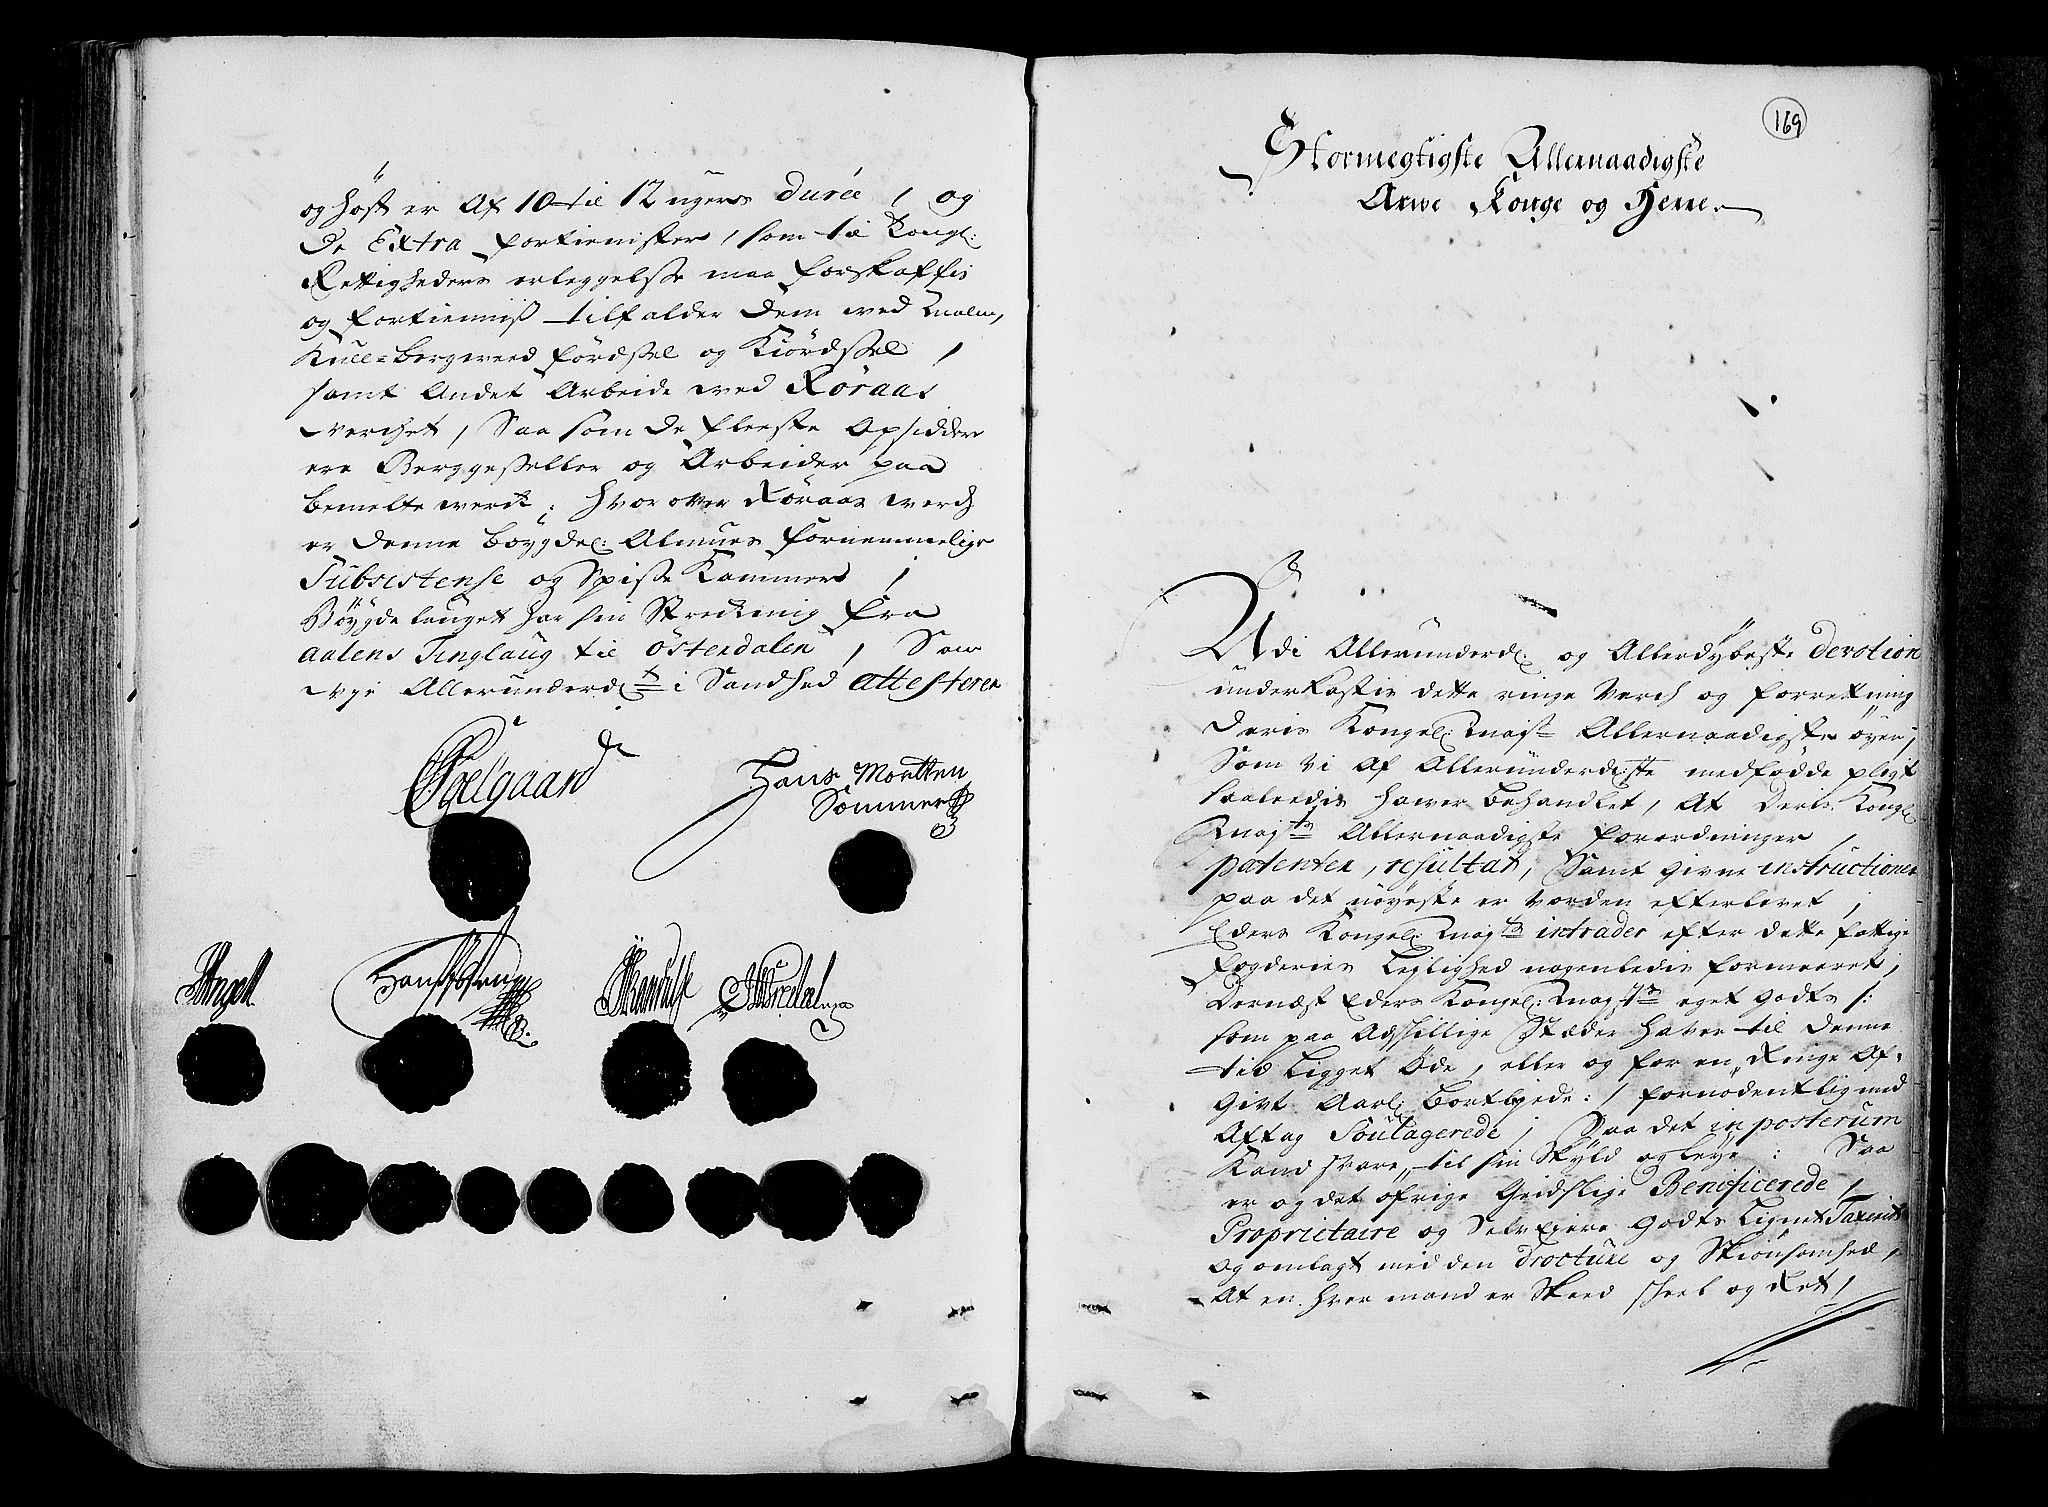 og høst er af 10 til 12 ugers Durée, og
De Extra fortienister, som til Kongl:
Rettigheders erleggelsse maa forskaffis
og fortienniss tilfalder dem ved Malm,
Kull-bergweed førdssel og Kiørdssel,
samt Andet Arbeide ved Røraas
verchet, Saa som de fleeste Opsiddere
ere Berggesseller og Arbeider paa
bemelte werk; hvorover Røraas werch
er denne bøygdel: Almues fornemmelige
Subsistense og Spisse Kammers,
Bøygdelauget har sin Streckning fra
aalens Tinglaug til Østerdalen, Som
vi Allerunderd: i Sandhed attesterer
Hans Mortten
Sommer
169
Stormegtigste Allernaadigste
Arwe Konge og Herre
Udi Alleründerd: og Allerdybeste devotion
underkastis dette ringe Verch og forrettning
Deris Kongel: Mayts Allernaadigste øyen,
Som vi af Alleründerd:ste medfødde pligt
saaledis hawer behandlet, At Deris Kongl:
Mayts Allernaadigste forordninger,
patenter, resultat, Samt givne instructioner
paa det nøyeste er vorden efterlevet,
Eders Kongel: Mayts intrader efter dette fattige
fogderies Lejlighed nogenledis formeeret,
Dernæst Eders Kongel: Mayts eget Godts /:
som paa Adskillige Stæder haver til denne
tid Ligget Øde, eller og for en Ringe Af-
Givt Aarl: Bortbyxede :/ fornødentlig med
Aftag Soulagerede, Saa det in posterum
Kand svare til sin Skyld og leye: Saa
er og det øfrige Geistlige Beneficerede,
Proprietaire og Selv Ejere Godts Lignet Taxerit
og omlagt med den Drocture og Skiønsomhed,
At en hver mand er Skeed skeel og Ret,